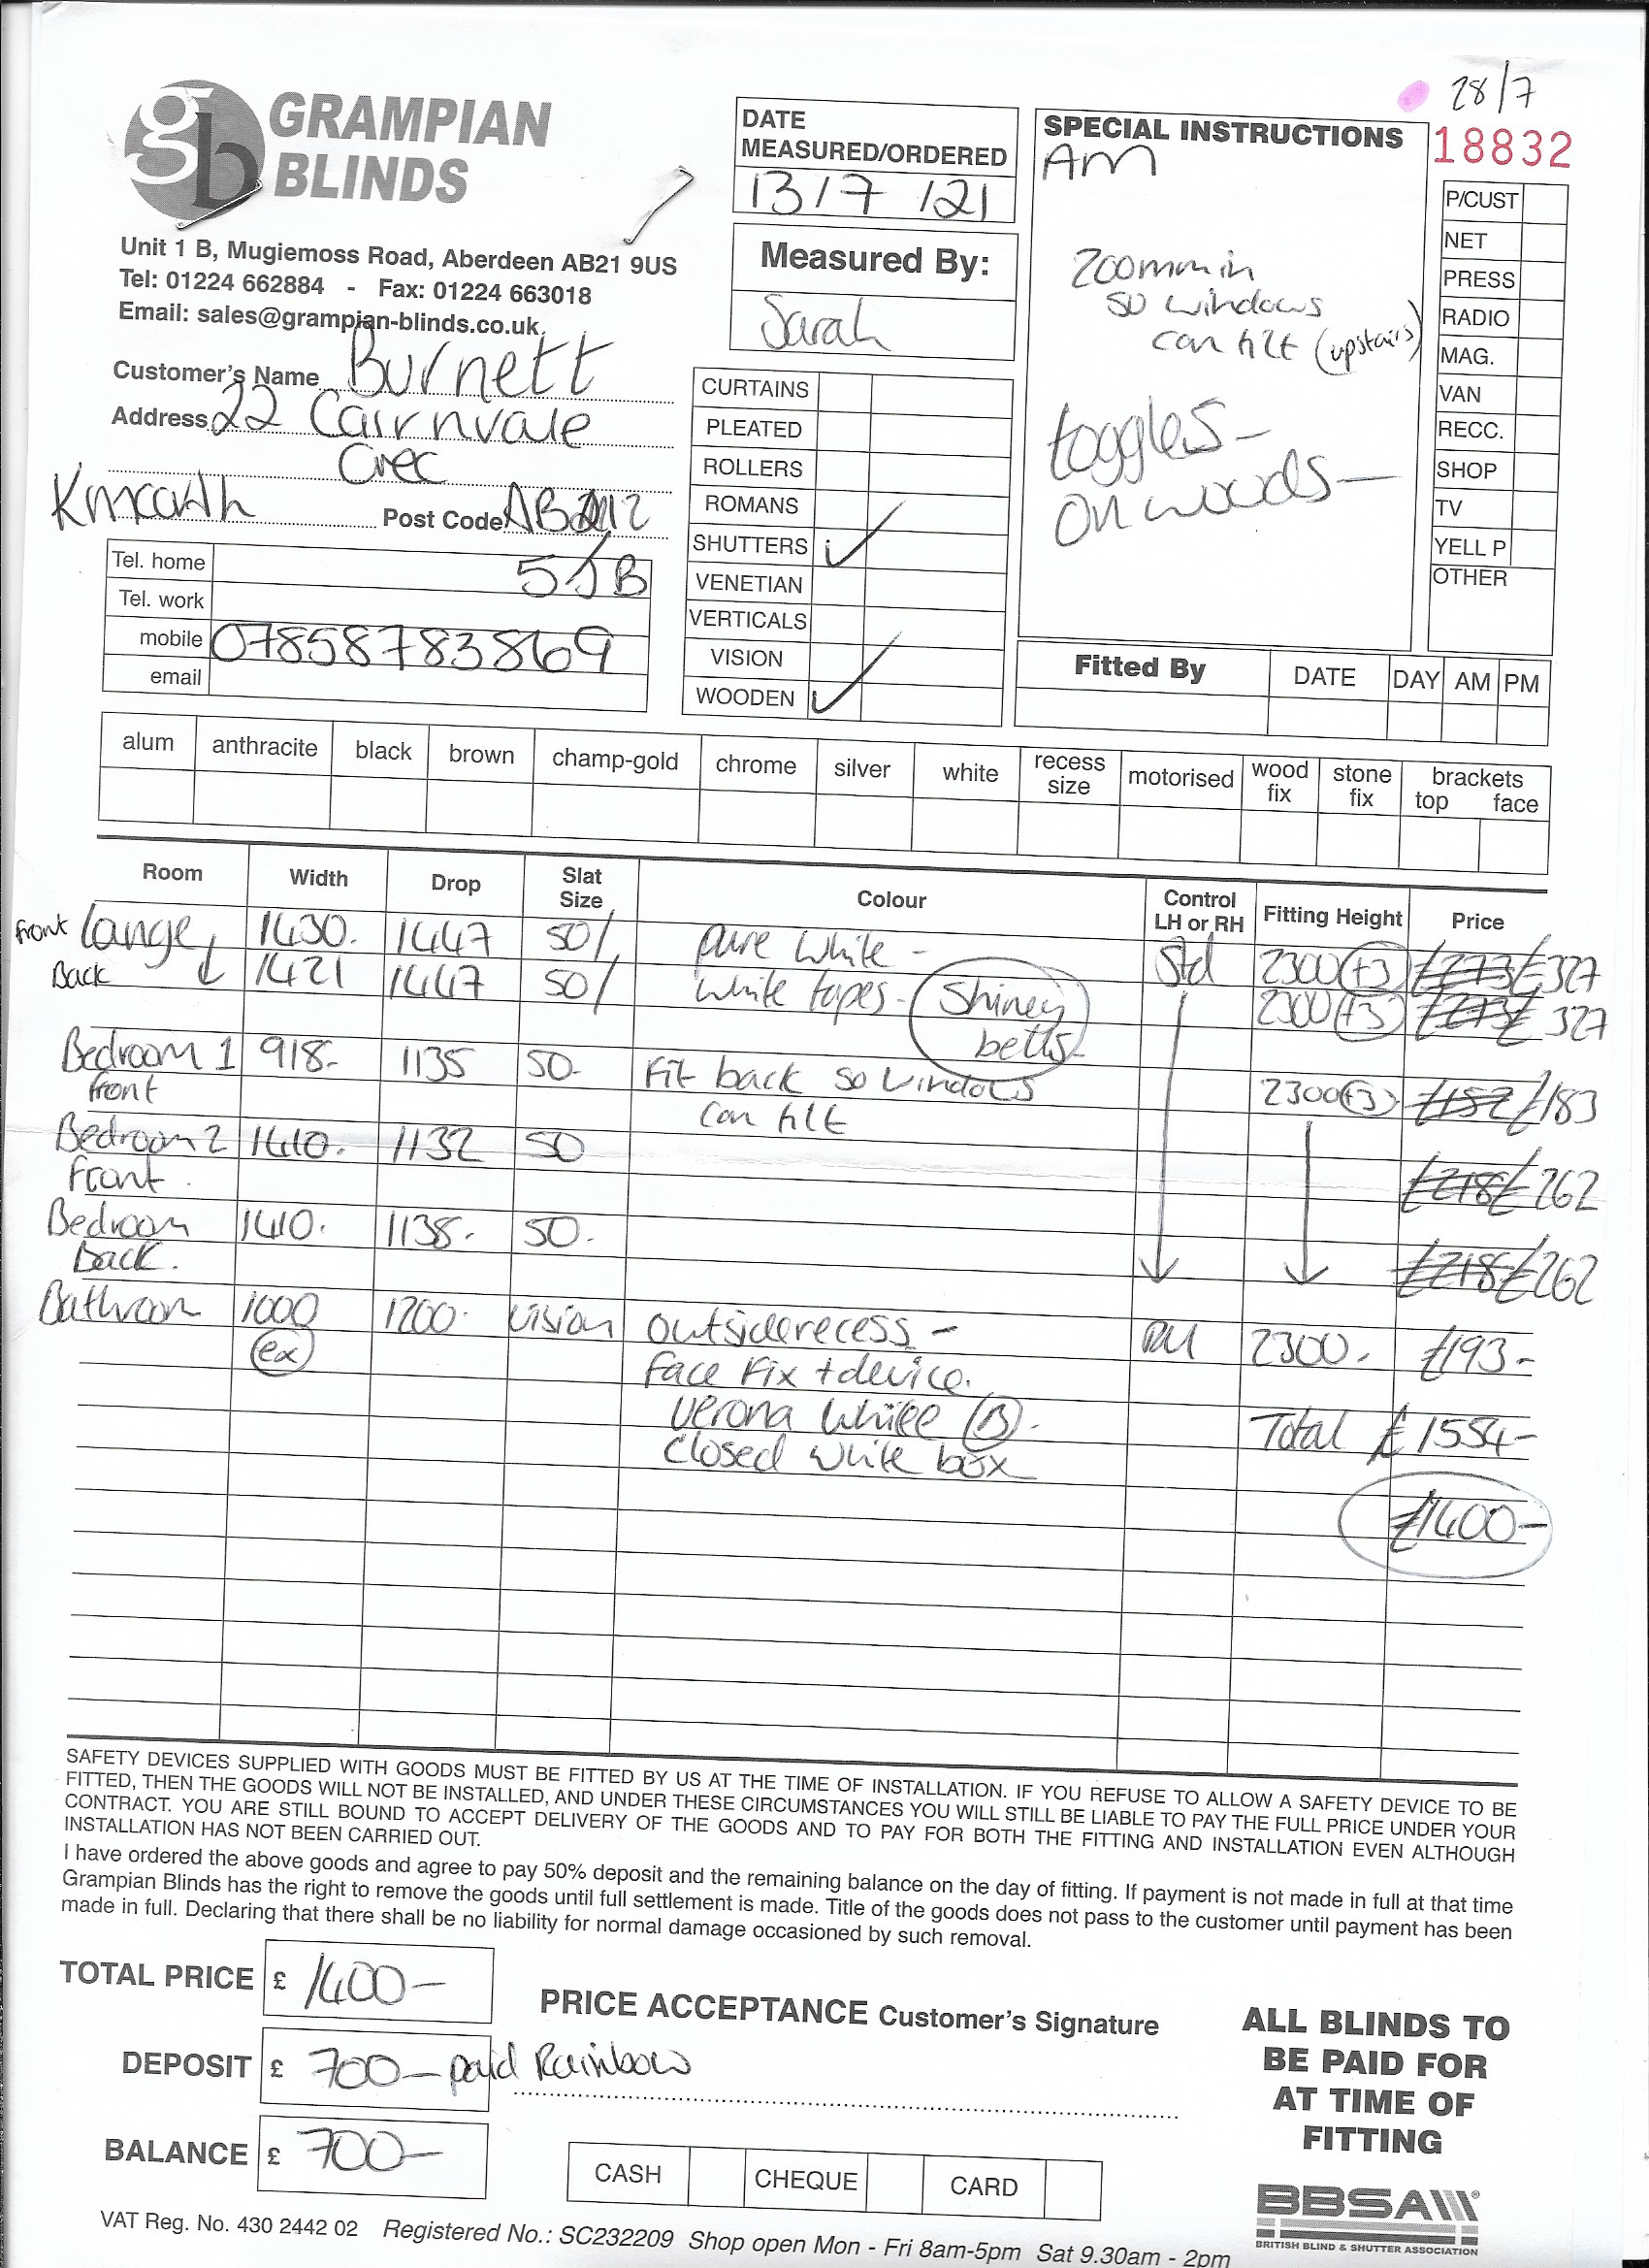 28/7
GRAMPIAN
BLINDS
Unit 1 B, Mugiemoss Road, Aberdeen AB21 9US
Tel: 01224 662884 - Fax: 01224 663018
Email: sales@grampian-blinds.co.uk
DATE
MEASURED/ORDERED
13/7/21
Measured By:
Sarah
SPECIAL INSTRUCTIONS
AM
200mm in
so windows
can tilt (upstairs)
toggles -
on woods -
18832
P/CUST
NET
PRESS
RADIO
MAG.
VAN
RECC.
SHOP
TV
YELL P
OTHER
Customer's Name Burnett
Address 22 Cairnvale
Cres
Post Code AB12
5JB
Tel. home
Tel. work
mobile 07858783869
email
CURTAINS
PLEATED
ROLLERS
ROMANS
SHUTTERS ✓
VENETIAN
VERTICALS
VISION
WOODEN ✓
Fitted By DATE DAY AM PM
alum anthracite black brown champ-gold chrome silver white recess size motorised wood fix stone fix brackets top face
Room Width Drop Slat Size Colour Control LH or RH Fitting Height Price
Front Lounge 1430. 1447 50/ pure white - Std 2300 (+3) £273 £327
Back ↓ 1421 1447 50/ white tapes - Shiney 2300 (+3) £273 £327
betts-
Bedroom 1 918- 1135 50- Fit back so windows 2300 (+3) £152 £183
Front can tilt
Bedroom 2 1410. 1132 50 £218 £262
Front.
Bedroom 1410. 1138. 50. £218 £262
Back.
Bathroom 1000 1200. Vision outside recess - RH 2300. £193-
(ex) Face Fix + device.
Verona White (B).
Closed white box
Total £1554-
£1400-
SAFETY DEVICES SUPPLIED WITH GOODS MUST BE FITTED BY US AT THE TIME OF INSTALLATION. IF YOU REFUSE TO ALLOW A SAFETY DEVICE TO BE
FITTED, THEN THE GOODS WILL NOT BE INSTALLED, AND UNDER THESE CIRCUMSTANCES YOU WILL STILL BE LIABLE TO PAY THE FULL PRICE UNDER YOUR
CONTRACT. YOU ARE STILL BOUND TO ACCEPT DELIVERY OF THE GOODS AND TO PAY FOR BOTH THE FITTING AND INSTALLATION EVEN ALTHOUGH
INSTALLATION HAS NOT BEEN CARRIED OUT.
I have ordered the above goods and agree to pay 50% deposit and the remaining balance on the day of fitting. If payment is not made in full at that time
Grampian Blinds has the right to remove the goods until full settlement is made. Title of the goods does not pass to the customer until payment has been
made in full. Declaring that there shall be no liability for normal damage occasioned by such removal.
TOTAL PRICE £ 1400-
PRICE ACCEPTANCE Customer's Signature
DEPOSIT £ 700- paid Rainbow
BALANCE £ 700-
CASH CHEQUE CARD
ALL BLINDS TO
BE PAID FOR
AT TIME OF
FITTING
BBSA
BRITISH BLIND & SHUTTER ASSOCIATION
VAT Reg. No. 430 2442 02 Registered No.: SC232209 Shop open Mon - Fri 8am-5pm Sat 9.30am - 2pm